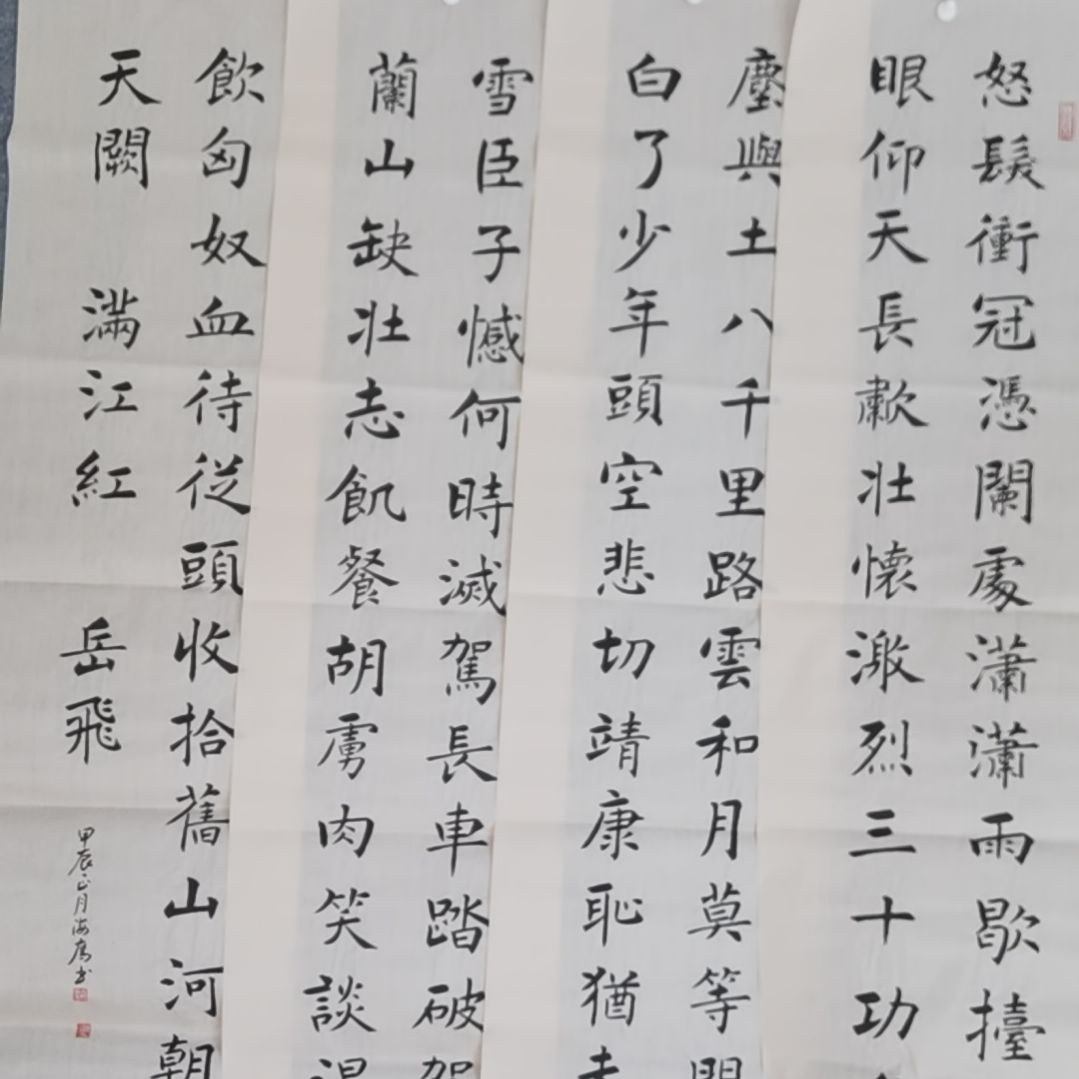 怒髮衝冠憑闌處瀟瀟雨歇擡
眼仰天長歗壯懷激烈三十功
塵與土八千里路雲和月莫等
白了少年頭空悲切靖康恥猶未
雪臣子憾何時滅駕長車踏破
蘭山缺壯志飢餐胡虜肉笑談渴
飲匈奴血待從頭收拾舊山河朝
天闕 滿江紅 岳飛
甲辰正月海书